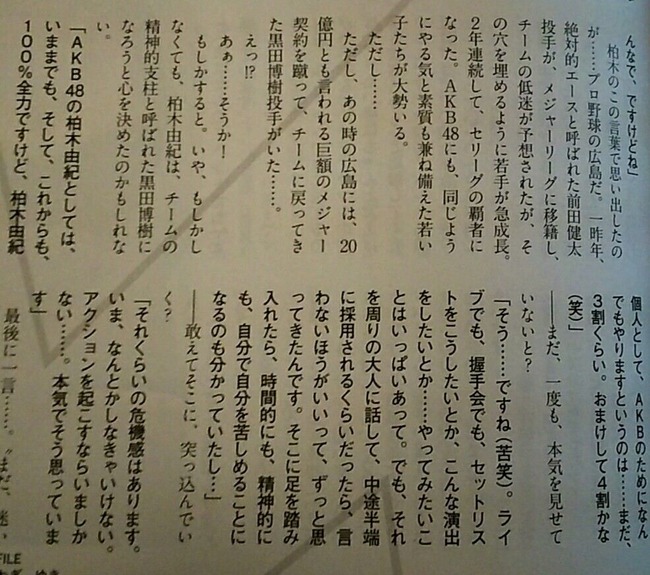 んなで、ですけどね」
　柏木のこの言葉で思い出したの
が……プロ野球の広島だ。一昨年、
絶対的エースと呼ばれた前田健太
投手が、メジャーリーグに移籍し、
チームの低迷が予想されたが、そ
の穴を埋めるように若手が急成長。
2年連続して、セリーグの覇者に
なった。AKB48にも、同じよう
にやる気と素質も兼ね備えた若い
子たちが大勢いる。
　ただし……
　ただし、あの時の広島には、20
億円とも言われる巨額のメジャー
契約を蹴って、チームに戻ってき
た黒田博樹投手がいた……。
　えっ!?
　あぁ……そうか！
　もしかすると。いや、もしかし
なくても、柏木由紀は、チームの
精神的支柱と呼ばれた黒田博樹に
なろうと心を決めたのかもしれな
い。
「AKB48の柏木由紀としては、
いままでも、そして、これからも、
100％全力ですけど、柏木由紀
個人として、AKBのためになん
でもやりますというのは……まだ、
3割くらい。おまけして4割かな
（笑）」
――まだ、一度も、本気を見せて
いないと？
「そう……ですね（苦笑）。ライ
ブでも、握手会でも、セットリス
トをこうしたいとか、こんな演出
をしたいとか……やってみたいこ
とはいっぱいあって。でも、それ
を周りの大人に話して、中途半端
に採用されるくらいだったら、言
わないほうがいいって、ずっと思
ってきたんです。そこに足を踏み
入れたら、時間的にも、精神的に
も、自分で自分を苦しめることに
なるのも分かっていたし…」
――敢えてそこに、突っ込んでい
く？
「それくらいの危機感はあります。
いま、なんとかしなきゃいけない。
アクションを起こすならいましか
ない……。本気でそう思っていま
す」
　最後に一言……。〝まだ、迷い
FILE